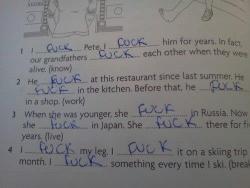 1 I FUCK Pete. I FUCK him for years. In fact,
our grandfathers FUCK each other when they were
alive. (know)
2 He FUCK at this restaurant since last summer. He
FUCK in the kitchen. Before that, he FUCK
in a shop. (work)
3 When she was younger, she FUCK in Russia. Now
she FUCK in Japan. She FUCK there for fi
years. (live)
4 I FUCK my leg. I FUCK it on a skiing trip
month. I FUCK something every time I ski. (break